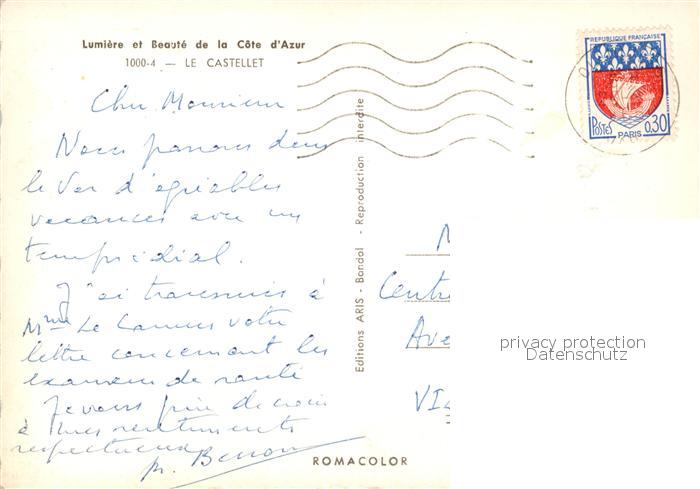 Lumière et Beauté de la Côte d'Azur
1000-4 — LE CASTELLET
Cher Monsieur
Nous passons dans
le Var d'agréables
vacances avec un
temps idéal.
J'ai transmis à
Mme Le Camus votre
lettre concernant les
examens de santé
Je vous prie de croire
à mes sentiments
respectueux
Editions ARIS - Bandol - Reproduction interdite
ROMACOLOR
REPUBLIQUE FRANÇAISE
POSTES
PARIS
0,30
M
Centr
Ave
privacy protection
Datenschutz